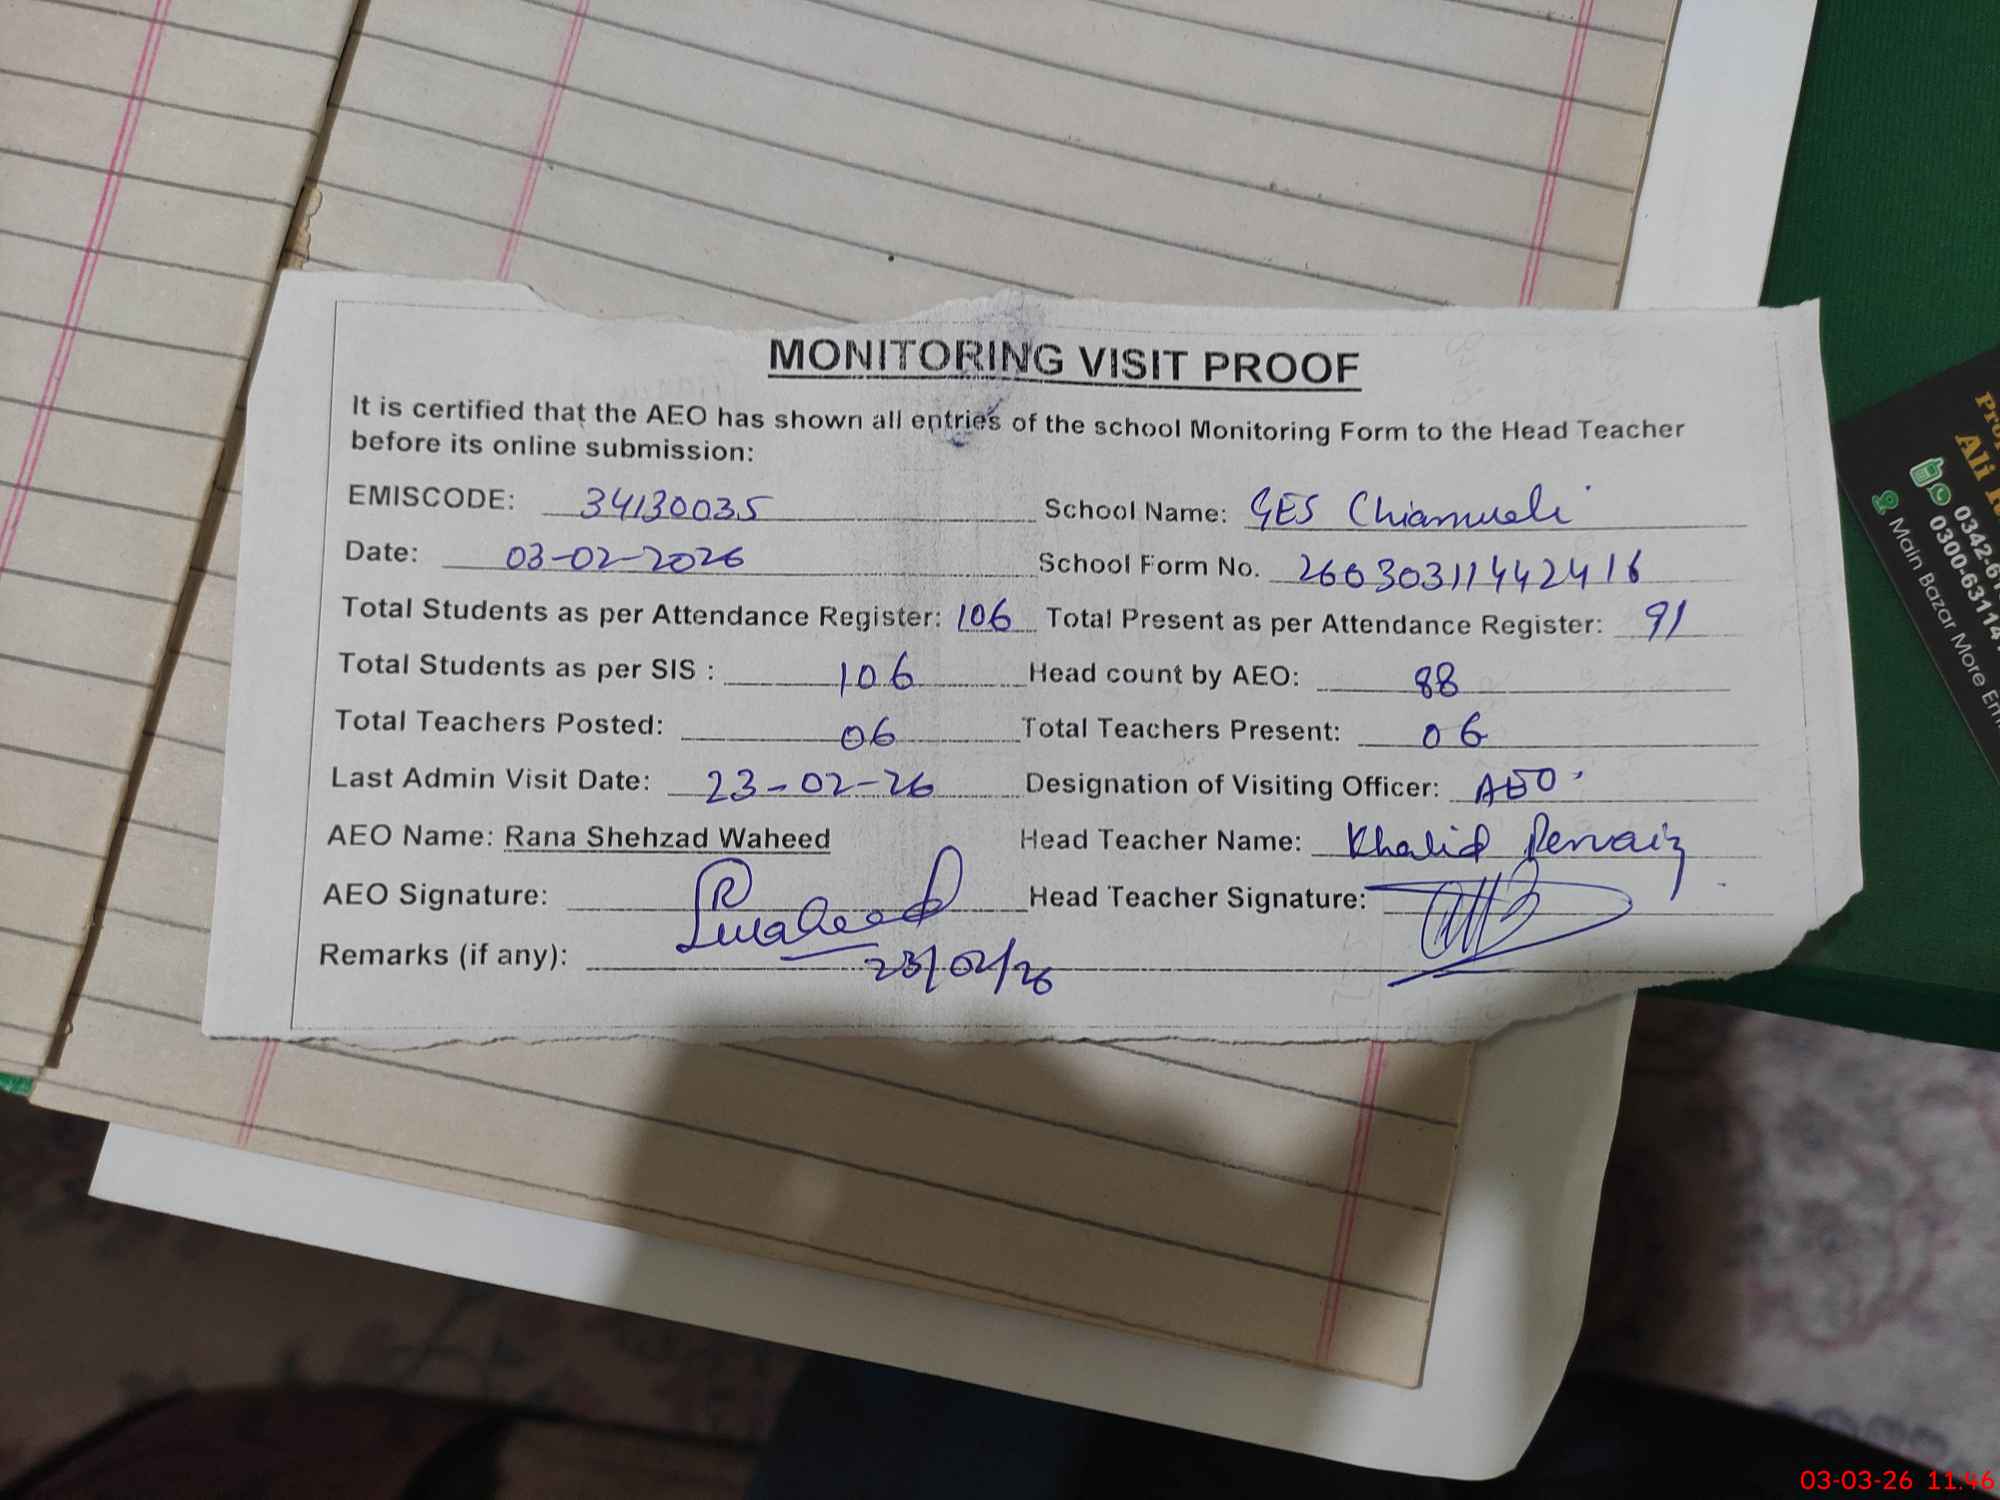 MONITORING VISIT PROOF
It is certified that the AEO has shown all entries of the school Monitoring Form to the Head Teacher
before its online submission:
EMISCODE: 34130035 School Name: GES Chianwali
Date: 03-02-2026 School Form No. 26030311442416
Total Students as per Attendance Register: 106 Total Present as per Attendance Register: 91
Total Students as per SIS : 106 Head count by AEO: 88
Total Teachers Posted: 06 Total Teachers Present: 06
Last Admin Visit Date: 23-02-26 Designation of Visiting Officer: AEO
AEO Name: Rana Shehzad Waheed Head Teacher Name: Khalid Pervaiz
AEO Signature: Head Teacher Signature:
Remarks (if any): 23/02/26
Ali
0342-6
0300-63114
Main Bazar More Em
03-03-26 11:46